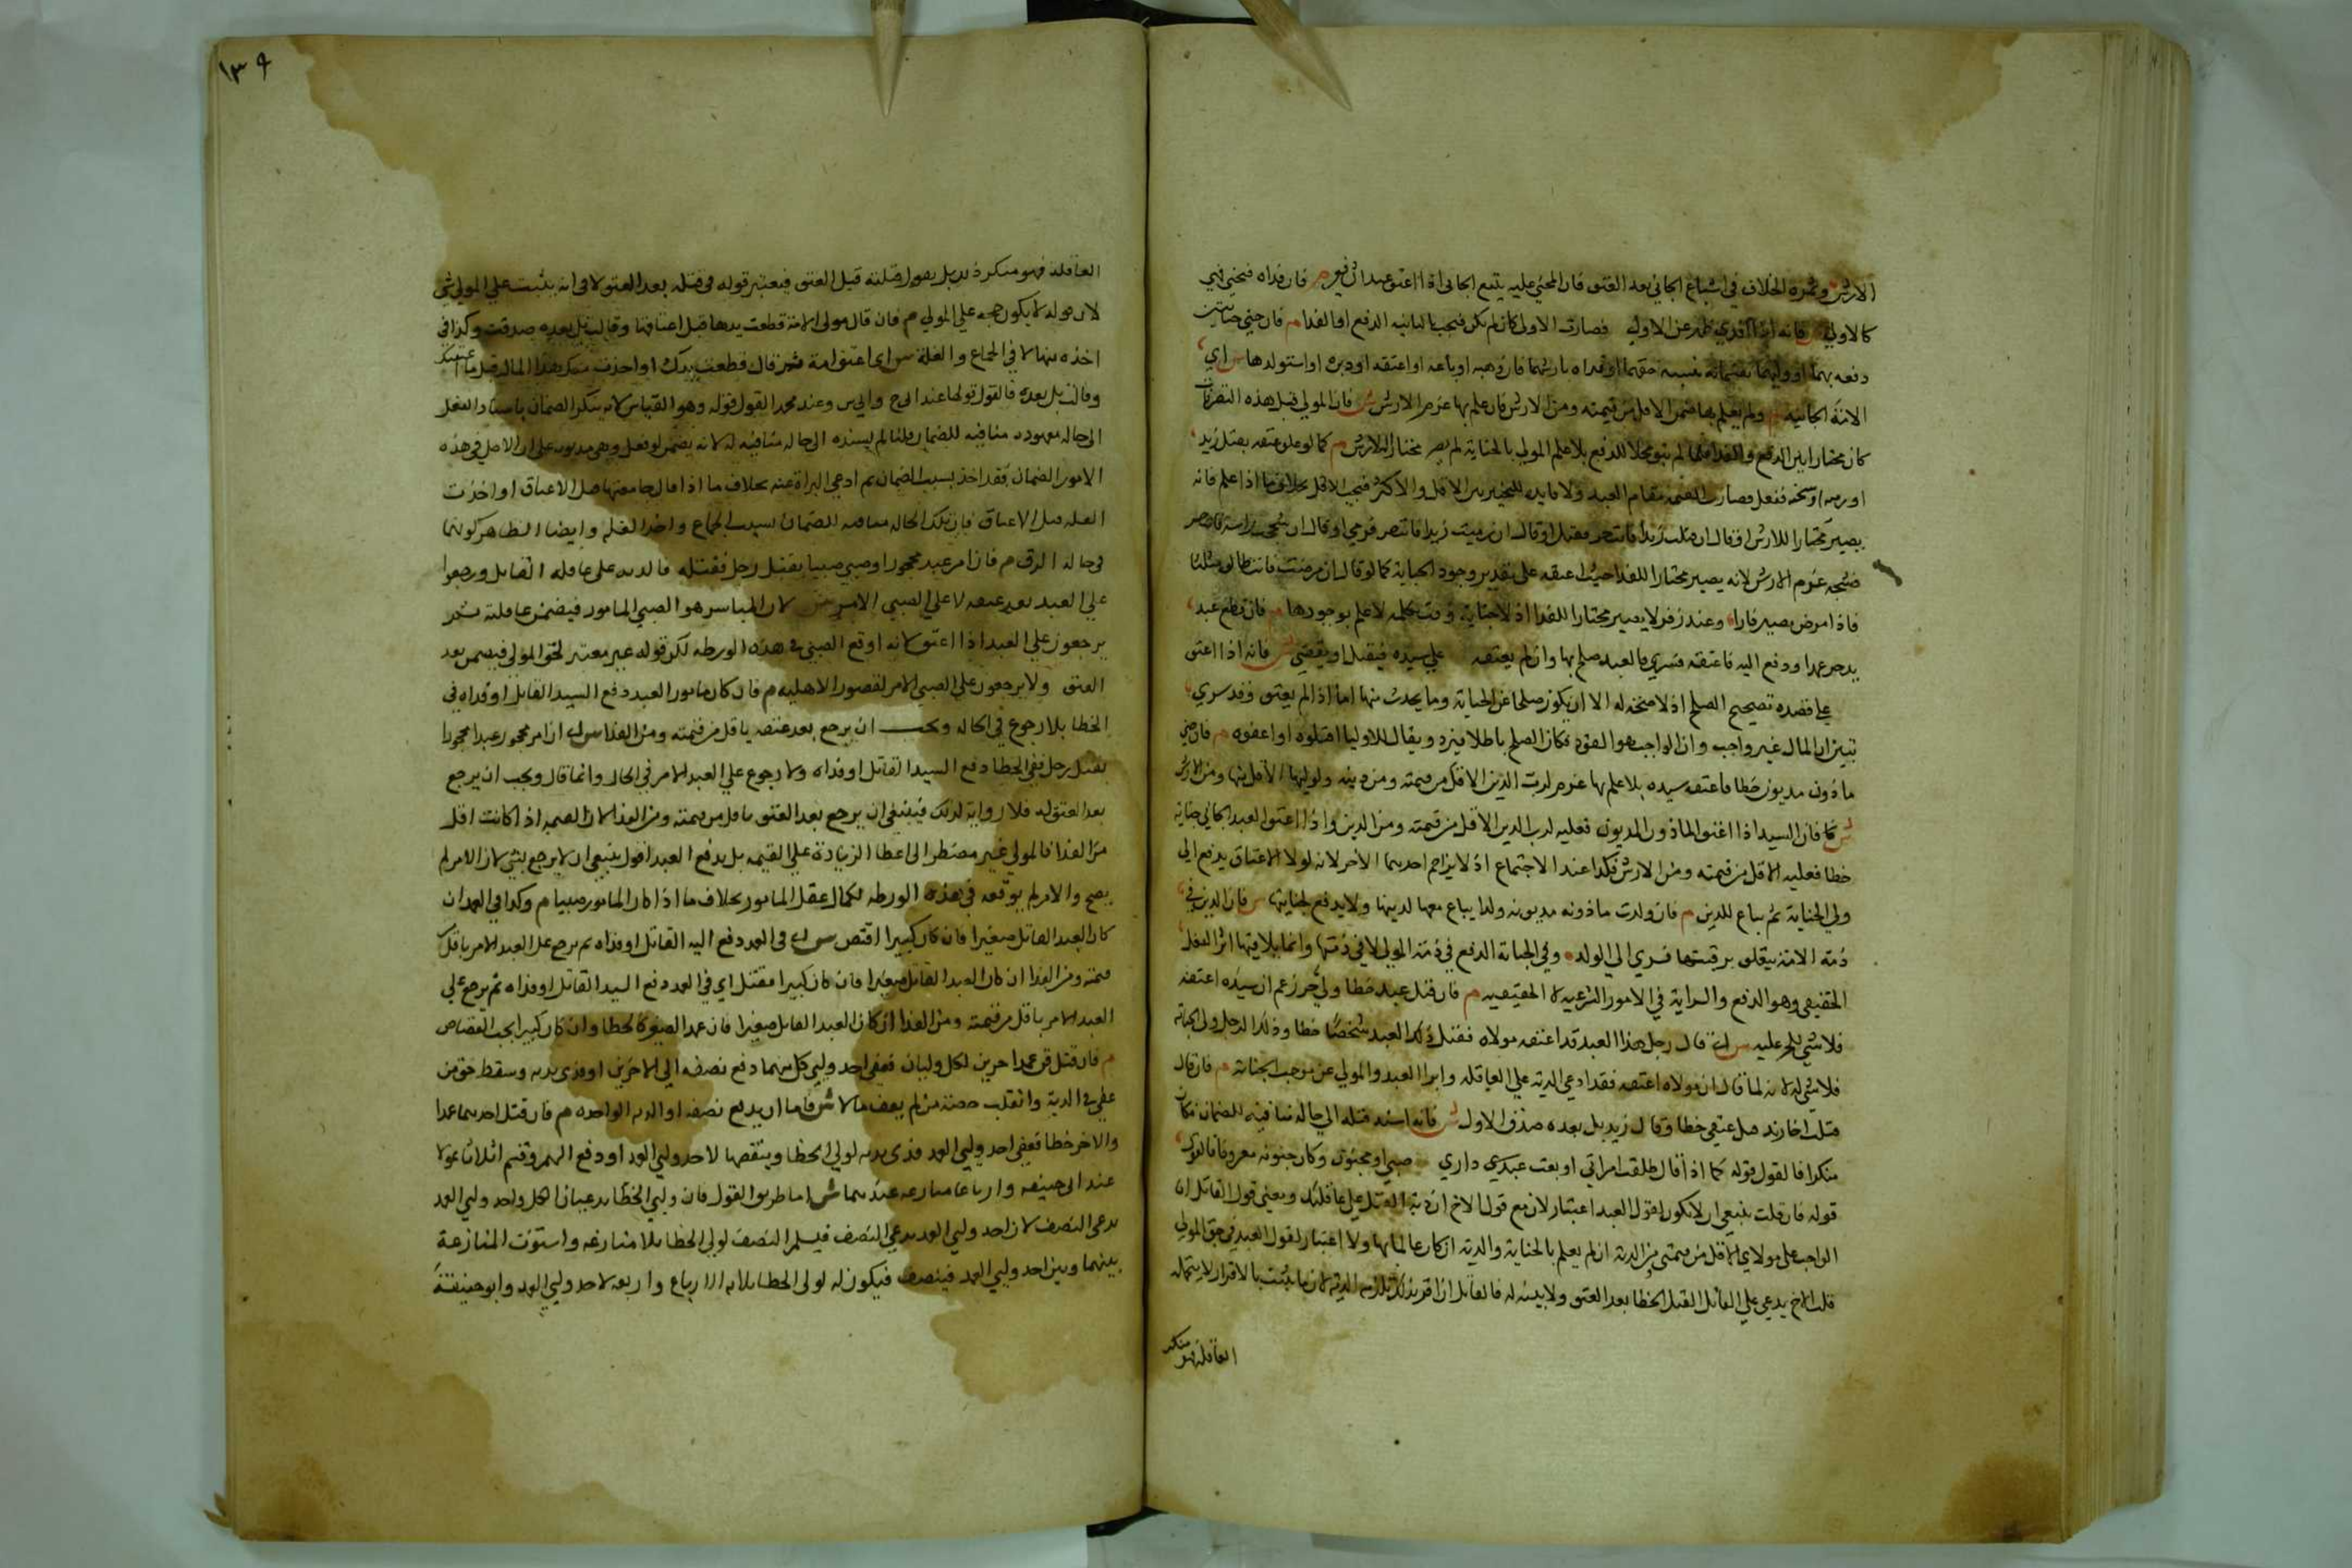 الارش وثمرة الخلاف في اتباع الجاني بعد العتق فان المجني عليه يتبع الجاني اذا اعتق عبدان فيع م فان فداه فجني فهي
كالاولي فانه اذا فدي طهر عن الاولي فصارت الاولي كان لم تكن فتجب بالثانيه الدفع او الفدا م فان جني جنايتين
دفعه بهما الي وليهما يقتسمانه بنسبة حقهما او فداه بارشهما فان وهبه او باعه او اعتقه او دبره او استولدها س اي
الامة الجانيه م ولم يعلم بها ضمن الاقل من قيمته ومن الارش فان علم بها غرم الارش ش فان المولي قبل هذه التصرفات
كان مختارا بين الدفع والفدا فلما لم يبق محلا للدفع بلا علم المولي بالجناية لم يصر مختارا للارش م كما لو علق عتقه بقتل زيد
او رميه او شجه ففعل فصارت القيمة مقام العبد ولا فايده للتخيير بين الاقل والاكثر فيجب الاقل بخلاف ما اذا علم فانه
يصير مختارا للارش او قال ان قتلت زيدا فانت حر فقتل او قال ان رميت زيدا فانت حر فرمي او قال ان شججت راسه فانت حر
فشجه غرم الارش لانه يصير مختارا للفدا حيث اعتقه علي تقدير وجود الجناية كما لو قال ان مرضت فانت طالق ثلثا
فاذا مرض يصير فارا وعند زفر لا يصير مختارا للفدا اذ لا جناية وقت تكلمه لا علم بوجودها م فان قطع عبد
يد حر عمدا ودفع اليه فاعتقه فسري فالعبد صلح بها وان لم يعتقه علي سيده فيقتل او يعفي ش فانه اذا اعتق
علي قصده تصحيح الصلح اذ لا صحة له الا ان يكون صلحا عن الجناية وما يحدث منها اما اذا لم يعتق وقد سري
تبين ان المال غير واجب وان الواجب هو القود فكان الصلح باطلا فيرد ويقال للاوليا اقتلوه او اعفوه م فان جني
ماذون مديون خطا فاعتقه سيده بلا علم بها غرم لرب الدين الاقل من قيمته ومن دينه ولوليها الاقل منها ومن الارش
ش فان السيد اذا اعتق الماذون المديون فعليه لرب الدين الاقل من قيمته ومن الدين واذا اعتق العبد الجاني جناية
خطا فعليه الاقل من قيمته ومن الارش فكذا عند الاجتماع اذ لا يزاحم احدهما الاخر لانه لولا الاعتاق يدفع الي
ولي الجناية ثم يباع للدين م فان ولدت ماذونه مديونه ولدا يباع معها لدينها ولا يدفع لجنايتها س فان الدين في
ذمة الامة يتعلق برقبتها فسري الي الولد وفي الجناية الدفع في ذمة المولي لا في ذمتها وانما يلاقيها اثر الفعل
الحقيقي وهو الدفع والسراية في الامور الشرعيه لا الحقيقيه م فان قتل عبد خطا ولي حر زعم ان سيده اعتقه
فلا شي للحر عليه س اي قال رجل هذا العبد قد اعتقه مولاه فقتل ذلك العبد شخصا خطا وذلك الرجل ولي الجناية
فلا شي له لانه لما قال ان مولاه اعتقه فقد ادعي الدية علي العاقله وابرا العبد والمولي عن موجب الجناية م فان قال
قتلت اخا زيد قبل عتقي خطا وقال زيد بل بعده صدق الاول ش فانه اسند قتله الي حاله منافيه للضمان فكان
منكرا فالقول قوله كما اذا قال طلقت امراتي او بعت عبدي داري صبي او مجنون وكان جنونه معروفا فالقول
قوله فان قلت ينبغي ان لا يكون لقول العبد اعتبار لان مع قول الاخ ان دية القتل علي عاقلتك ومعني قول القاتل ان
الواجب علي مولاي الاقل من قيمتي ومن الدية ان لم يعلم بالجناية والدية ان كان عالما بها ولا اعتبار لقول العبد في حق المولي
قلت الاخ يدعي علي القاتل القتل الخطا بعد العتق ولا بينه له فالقاتل ان اقر بذلك يلزمه الدية لان ما يثبت بالاقرار لا يتحمله
العاقله فهو منكر
١٣٩
العاقله فهو منكر ذلك بل يقول قتلته قبل العتق فيعتبر قوله في قتله بعد العتق لا في انه يثبت علي المولي شي
لان قوله لا يكون حجه علي المولي م فان قال مولي الامة قطعت يدها قبل اعتاقها وقالت بل بعده صدقت وكذا في
اخذه منها لا في الجماع والغلة س اي اعتق امة ثم قال قطعت يدك او اخذت منك هذا المال قبل ما اعتقتك
وقالت بل بعده فالقول قولها عند ابي ح وابي س وعند محمد القول قوله وهو القياس لانه ينكر الضمان باسناد الفعل
الي حاله معهوده منافيه للضمان قلنا لم يسنده الي حاله منافيه له لانه يضمن لو فعل وهي مديونه علي ان الاصل في هذه
الامور الضمان فقد اخذ بسبب الضمان ثم ادعي البراة عنه بخلاف ما اذا قال جامعتها قبل الاعتاق او اخذت
الغله قبل الاعتاق فان تلك الحاله منافيه للضمان بسبب الجماع واخذ الغله وايضا الظاهر كونهما
في حالة الرق م فان امر عبد محجور او صبي صبيا بقتل رجل فقتله فالدية علي عاقلة القاتل ورجعوا
علي العبد بعد عتقه لا علي الصبي الامر ش لان المباشر هو الصبي المامور فيضمن عاقلته ثم
يرجعون علي العبد اذا اعتق لانه اوقع الصبي في هذه الورطه لكن قوله غير معتبر لحق المولي فيضمن بعد
العتق ولا يرجعون علي الصبي الامر لقصور الاهليه م فان كان مامور العبد دفع السيد القاتل او فداه في
الخطا بلا رجوع في الحاله ويجب ان يرجع بعد عتقه باقل من قيمته ومن الفدا س اي ان امر محجور عبدا محجورا
بقتل رجل ففي الخطا دفع السيد القاتل او فداه ولا رجوع علي العبد الامر في الحال وانما قال ويجب ان يرجع
بعد العتق لانه فلا رواية لذلك فينبغي ان يرجع بعد العتق باقل من قيمته ومن الفدا لان القيمه اذا كانت اقل
من الفدا فالمولي غير مضطر الي اعطا الزيادة علي القيمه بل يدفع العبد اقول ينبغي ان لا يرجع بشي لان الامر لم
يصح والامر لم يوقعه في هذه الورطه لكمال عقل المامور بخلاف ما اذا كان المامور صبيا م وكذا في العمد ان
كان العبد القاتل صغيرا فان كان كبيرا اقتص س اي في العمد دفع اليه القاتل او فداه ثم يرجع علي العبد الامر باقل
قيمته ومن الفدا ان كان العبد القاتل صغيرا فان كان كبيرا فقتل اي في العمد دفع السيد القاتل او فداه ثم يرجع علي
العبد الامر باقل من قيمته ومن الفدا ان كان العبد القاتل صغيرا فان عمد الصغير كالخطا وان كان كبيرا يجب القصاص
م فان قتل قن عمدا حرين لكل وليان فعفي احد وليي كل منهما دفع نصفه الي الاخرين او فدي بدية وسقط حق من
عفي في الدية وانقلب حصة من لم يعف مالا ش فاما ان يدفع نصفه او الدية الواحده م فان قتل احدهما عمدا
والاخر خطا فعفي احد وليي العمد فدي بدية لولي الخطا وبنصفها لاحد وليي العمد او دفع اليهم وقسم اثلاثا عولا
عند ابي حنيفه وارباعا منازعه عندهما ش اما طريق القول فان وليي الخطا يدعيان الكل واحد وليي العمد
يدعي النصف لان احد وليي العمد يدعي النصف فيسلم النصف لولي الخطا بلا منازعه واستوت المنازعة
بينهما وبين احد وليي العمد فينصف فيكون له لولي الخطا ثلاثة ارباع واربعه لاحد وليي العمد وابو حنيفة